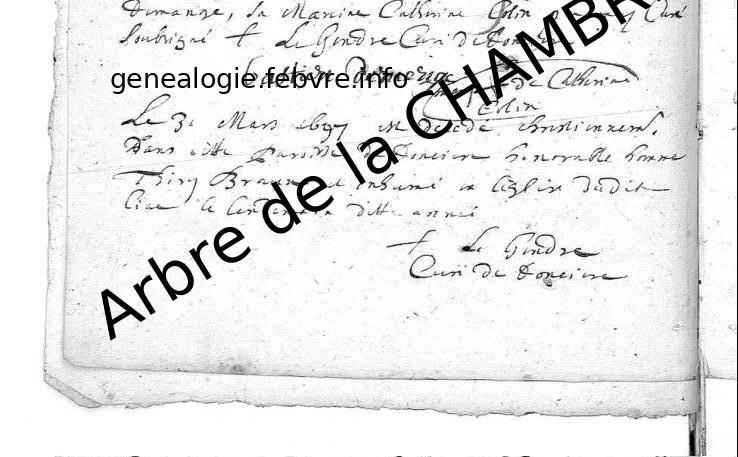 Dimange, Sa Maraine Catherine Colin Curé
Soubsigné + Le Gendre Curé de
genealogie.febvre.info
de Catherine
Colin
Le 31 Mars est decede chrestiennemt.
Dans cette Paroisse de Donciere honorable homme
Thiry Braun et inhumé en l'église dudit
lieu le ditte année
+ Le Gendre
Curé de Donciere
Arbre de la CHAMBR